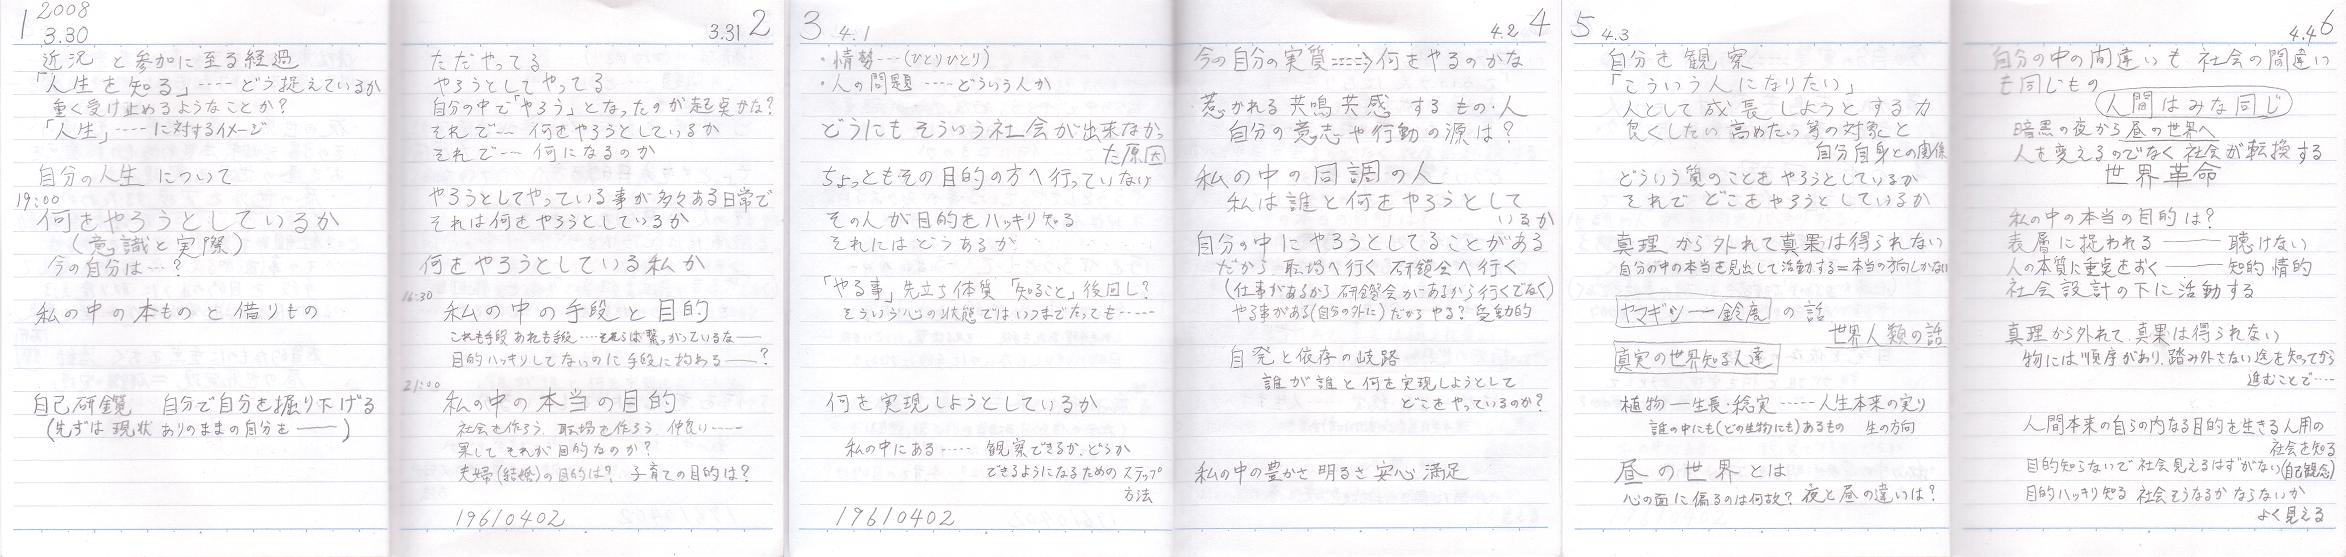 1 2008
3.30
近況 と 参加に 至る 経過
「人生 を 知る」‥‥ どう 捉えているか
重く受け止めるようなことか?
「人生」‥‥に対するイメージ
自分の人生 について
19:00
何をやろうとしているか
(意識と実際)
今の自分は…?
私の中の本ものと借りもの
自己研鑽 自分で自分を掘り下げる
(先ずは 現状 ありのままの自分を ――)
3.31 2
ただやってる
やろうとしてやってる
自分の中で「やろう」となったのが起点かな?
それで‥‥ 何をやろうとしているか
それで‥‥ 何になるのか
やろうとしてやっている事が多々ある日常で
それは何をやろうとしているか
何をやろうとしている私か
16:30
私の中の手段と目的
これも手段 あれも手段‥‥それらは繋がっているな――
目的ハッキリしてないのに手段に拘わる――?
21:00
私の中の本当の目的
社会を作ろう、職場を作ろう 仲良い‥‥
果して それが目的なのか?
夫婦(結婚)の目的は? 子育ての目的は?
19610402
3 4.1
・情勢‥‥(ひとりひとり)
・人の問題 ‥‥ どういう人か
どうにも そういう社会が出来なかっ
た原因
ちょっともその目的の方へ行っていない
その人が目的をハッキリ知る
それにはどうあるか
「やる事」先立ち体質 「知ること」後回し?
そういう心の状態ではいつまでたっても‥‥‥
何を実現しようとしているか
私の中にある‥‥‥ 観察できるか、どうか
できるようになるための ステップ
方法
19610402
4.2 4
今の自分の実質 ⇒ 何をやるのかな
惹かれる 共鳴 共感 するもの・人
自分の意志や行動の源は?
私の中の同調の人
私は誰と何をやろうとして
いるか
自分の中にやろうとしてることがある
だから 職場へ行く 研鑽会へ行く
(仕事があるから 研鑽会があるから行くでなく)
やる事がある(自分の外に)だからやる? 受動的
自発と依存の岐路
誰が誰と何を実現しようとして
どこをやっているのか?
私の中の豊かさ 明るさ 安心 満足
5 4.3
自分を観察
「こういう人になりたい」
人として成長しようとする力
良くしたい 高めたい 等の対象と
自分自身との関係
どういう質のことをやろうとしているか
それで どこをやろうとしているか
真理から外れて真果は得られない
自分の中の本当を見出して活動する=本当の方向しかない
ヤマギシ―鈴鹿 の話
世界人類の話
真実の世界知る人達
植物―生長・稔実‥‥‥人生本来の実り
誰の中にも(どの生物にも)あるもの 生の方向
昼の世界とは
心の面に偏るのは何故? 夜と昼の違いは?
4.4 6
自分の中の間違いも 社会の間違い
も同じもの
人間はみな同じ
暗黒の夜から昼の世界へ
人を変えるのでなく 社会が転換する
世界革命
私の中の本当の目的は?
表層に捉われる ―― 聴けない
人の本質に重点をおく ―― 知的 情的
社会設計の下に活動する
真理から外れて、真果は得られない
物には順序があり、踏み外さない迄を知ってから
進むことで‥‥
人間本来の自らの内なる目的を生きる人用の
社会を知る
目的知らないで 社会見えるはずがない(自己観念)
目的ハッキリ知る 社会そうなるか ならないか
よく見える